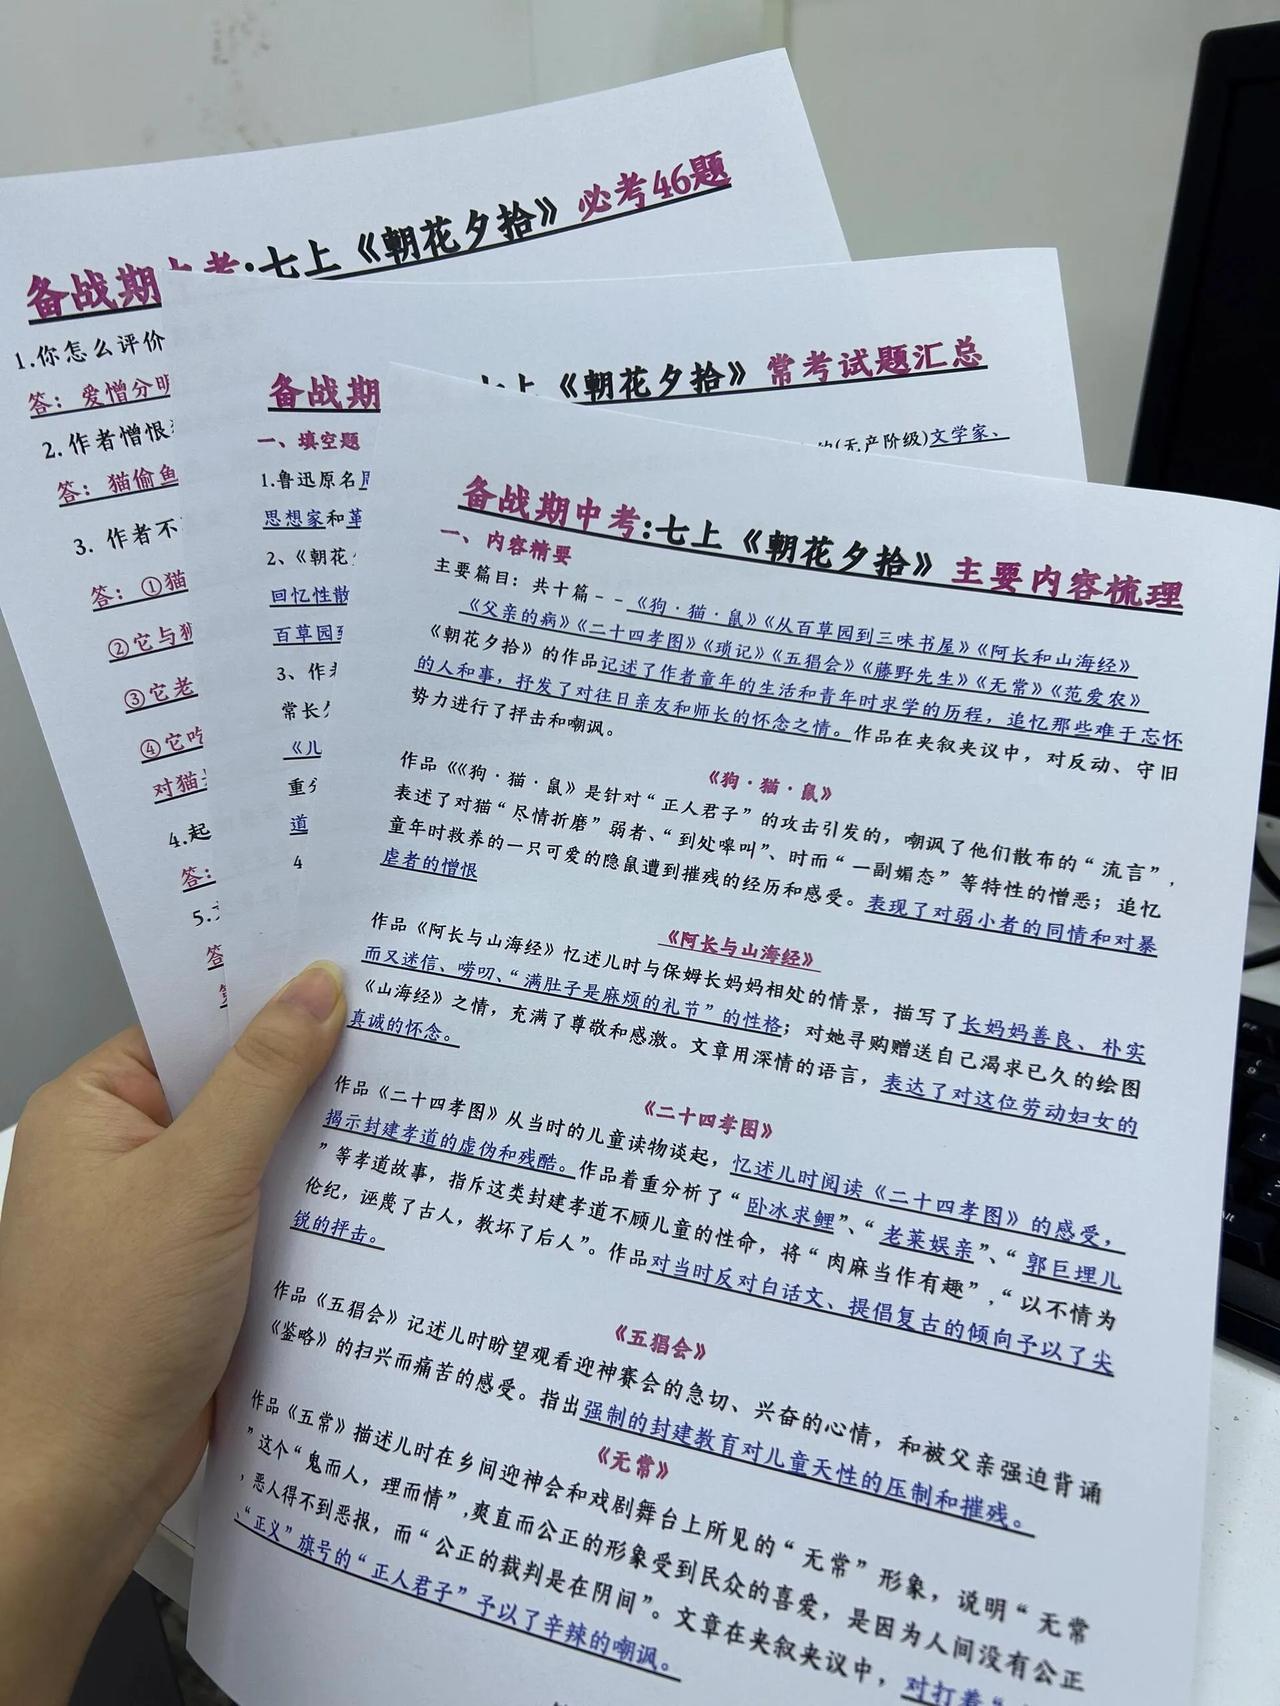 备战期中考:七上《朝花夕拾》必考46题
1.你怎么评价
答：爱憎分明
2.作者憎恨
答：猫偷鱼
3. 作者不
答：①猫
②它与
③它老
④它吃
对猫
4.起
答：
5.
答
备战期 七上《朝花夕拾》常考试题汇总
一、填空题
的(无产阶级)文学家、
1.鲁迅原名
思想家和革
2、《朝花
回忆性散
百草园到
3、作者
常长
《儿
重
道
4
备战期中考:七上《朝花夕拾》主要内容梳理
一、内容精要
主要篇目：共十篇--《狗·猫·鼠》《从百草园到三味书屋》《阿长和山海经》
《父亲的病》《二十四孝图》《琐记》《五猖会》《藤野先生》《无常》《范爱农》
《朝花夕拾》的作品记述了作者童年的生活和青年时求学的历程，追忆那些难于忘怀
的人和事，抒发了对往日亲友和师长的怀念之情。作品在夹叙夹议中，对反动、守旧
势力进行了抨击和嘲讽。
《狗·猫·鼠》
作品《《狗·猫·鼠》是针对“正人君子”的攻击引发的，嘲讽了他们散布的“流言”，
表述了对猫“尽情折磨”弱者、“到处嗥叫”、时而“一副媚态”等特性的憎恶；追忆
童年时救养的一只可爱的隐鼠遭到摧残的经历和感受。表现了对弱小者的同情和对暴
虐者的憎恨
《阿长与山海经》
作品《阿长与山海经》忆述儿时与保姆长妈妈相处的情景，描写了长妈妈善良、朴实
而又迷信、唠叨、“满肚子是麻烦的礼节”的性格；对她寻购赠送自己渴求已久的绘图
《山海经》之情，充满了尊敬和感激。文章用深情的语言，表达了对这位劳动妇女的
真诚的怀念。
《二十四孝图》
作品《二十四孝图》从当时的儿童读物谈起，忆述儿时阅读《二十四孝图》的感受，
揭示封建孝道的虚伪和残酷。作品着重分析了“卧冰求鲤”、“老莱娱亲”、“郭巨埋儿
”等孝道故事，指斥这类封建孝道不顾儿童的性命，将“肉麻当作有趣”，“以不情为
伦纪，诬蔑了古人，教坏了后人”。作品对当时反对白话文、提倡复古的倾向予以了尖
锐的抨击。
《五猖会》
作品《五猖会》记述儿时盼望观看迎神赛会的急切、兴奋的心情，和被父亲强迫背诵
《鉴略》的扫兴而痛苦的感受。指出强制的封建教育对儿童天性的压制和摧残。
《无常》
作品《五常》描述儿时在乡间迎神会和戏剧舞台上所见的“无常”形象，说明“无常
”这个“鬼而人，理而情”,爽直而公正的形象受到民众的喜爱，是因为人间没有公正
，恶人得不到恶报，而“公正的裁判是在阴间”。文章在夹叙夹议中，对打着“
、“正义”旗号的“正人君子”予以了辛辣的嘲讽。